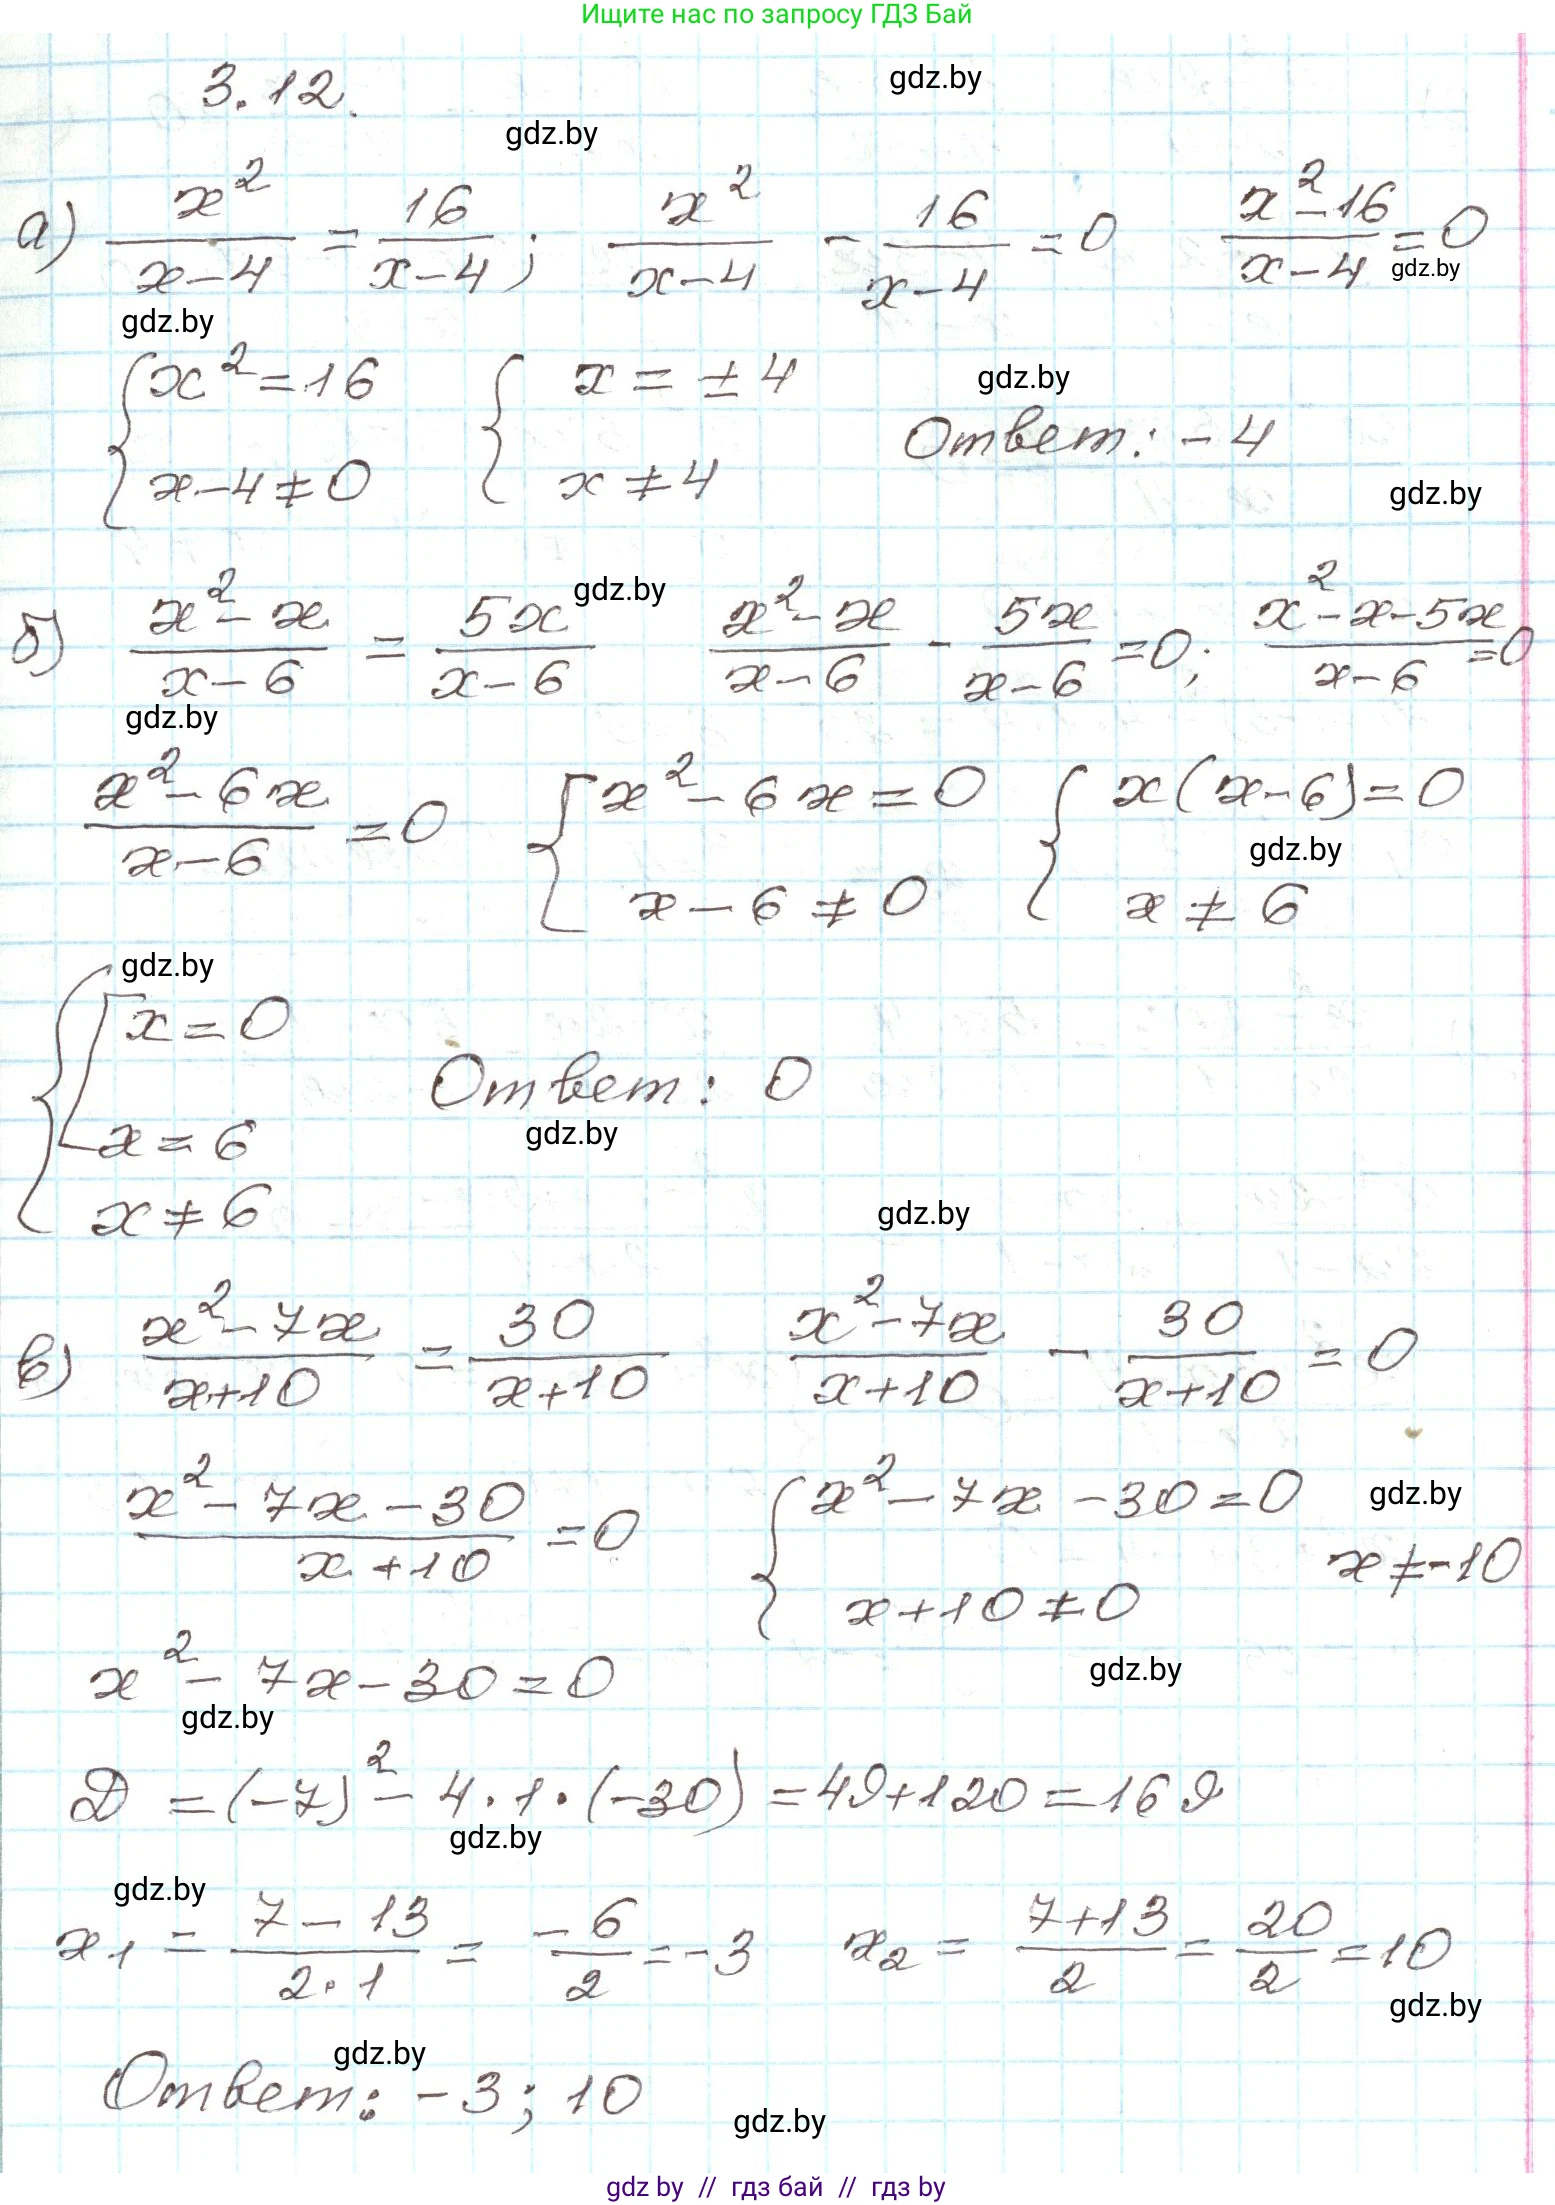 Ищите нас по запросу ГДЗ Бай
3.12.
gdz.by
gdz.by
а) x²/(x-4) = 16/(x-4); x²/(x-4) - 16/(x-4) = 0 (x²-16)/(x-4) = 0
gdz.by
gdz.by
{ x² = 16 { x = ±4
gdz.by
Ответ: -4
x-4 ≠ 0 x ≠ 4
gdz.by
gdz.by
б) (x²-x)/(x-6) = 5x/(x-6) (x²-x)/(x-6) - 5x/(x-6) = 0; (x²-x-5x)/(x-6) = 0
gdz.by
(x²-6x)/(x-6) = 0 { x²-6x = 0 { x(x-6) = 0
gdz.by
x-6 ≠ 0 x ≠ 6
gdz.by
{ [ x = 0
Ответ: 0
gdz.by
x = 6
x ≠ 6
gdz.by
в) (x²-7x)/(x+10) = 30/(x+10) (x²-7x)/(x+10) - 30/(x+10) = 0
(x²-7x-30)/(x+10) = 0 { x²-7x-30 = 0
gdz.by
x ≠ -10
x+10 ≠ 0
gdz.by
x²-7x-30 = 0
gdz.by
D = (-7)²-4·1·(-30) = 49+120 = 169
gdz.by
gdz.by
x₁ = (7-13)/(2·1) = -6/2 = -3 x₂ = (7+13)/2 = 20/2 = 10
gdz.by
gdz.by
Ответ: -3; 10
gdz.by
gdz by // гдз бай // гдз by